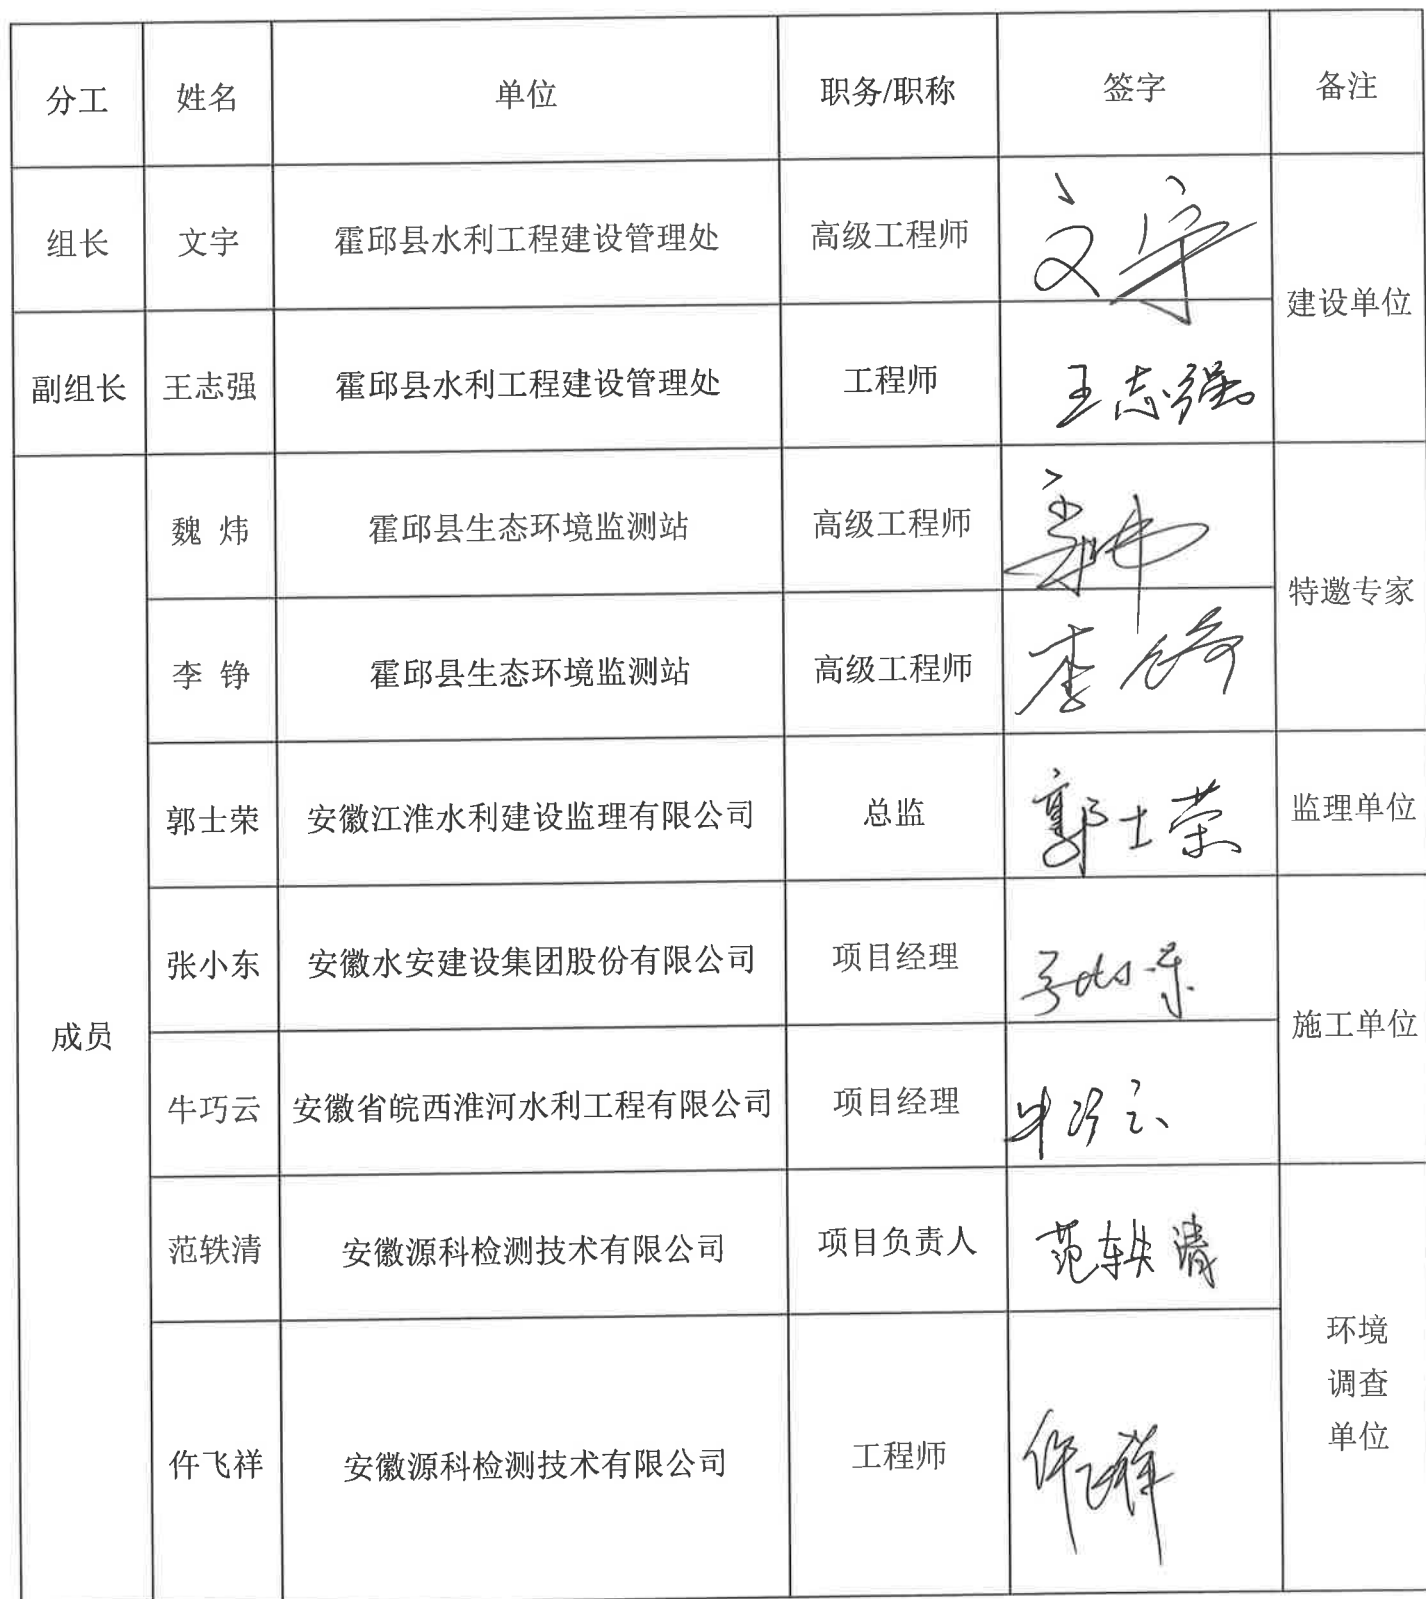 分工 姓名 单位 职务/职称 签字 备注
组长 文宇 霍邱县水利工程建设管理处 高级工程师 文宇 建设单位
副组长 王志强 霍邱县水利工程建设管理处 工程师 王志强
成员 魏 炜 霍邱县生态环境监测站 高级工程师 特邀专家
李 铮 霍邱县生态环境监测站 高级工程师 李铮
郭士荣 安徽江淮水利建设监理有限公司 总监 郭士荣 监理单位
张小东 安徽水安建设集团股份有限公司 项目经理 施工单位
牛巧云 安徽省皖西淮河水利工程有限公司 项目经理 牛巧云
范轶清 安徽源科检测技术有限公司 项目负责人 范轶清
环境
调查
单位
仵飞祥 安徽源科检测技术有限公司 工程师 仵飞祥